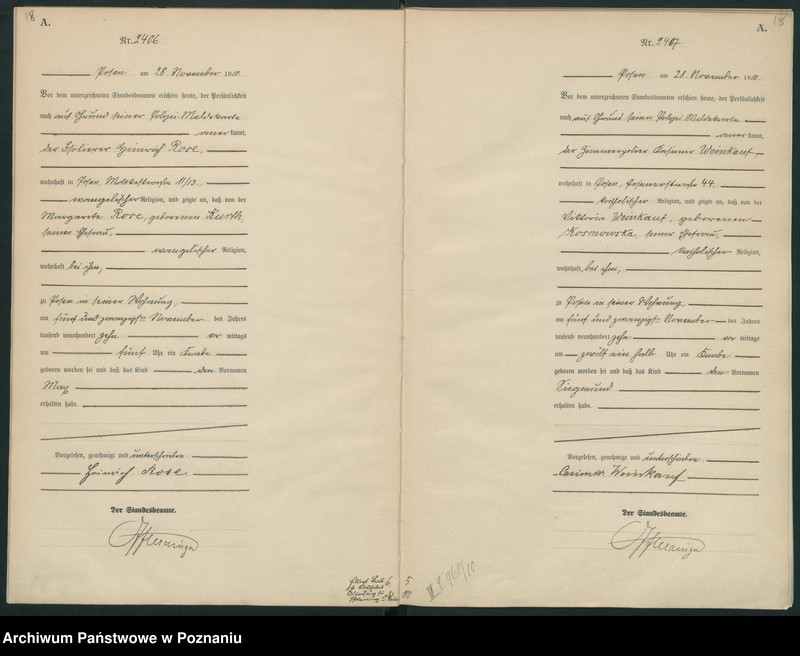 8
A.
Nr. 2406
Posen am 28. November 1910.
Vor dem unterzeichneten Standesbeamten erschien heute, der Persönlichkeit
nach auf Grund seiner Polizei-Meldekarte
anerkannt,
der Isolierer Heinrich Rose,
wohnhaft in Posen, Moltkestraße 11/13,
evangelischer Religion, und zeigte an, daß von der
Margarete Rose, geborenen Kurth,
seiner Ehefrau,
evangelischer Religion,
wohnhaft bei ihm,
zu Posen in seiner Wohnung,
am fünf und zwanzigsten November des Jahres
tausend neunhundert zehn vor mittags
um fünf Uhr ein Knabe
geboren worden sei und daß das Kind den Vornamen
Max
erhalten habe.
Vorgelesen, genehmigt und unterschrieben
Heinrich Rose
Der Standesbeamte.
A.
Nr. 2407
Posen am 28. November 1910.
Vor dem unterzeichneten Standesbeamten erschien heute, der Persönlichkeit
nach auf Grund seiner Polizei-Meldekarte
anerkannt,
der Zimmerpolier Kasimir Weinkauf
wohnhaft in Posen, Posenerstraße 44.
katholischer Religion, und zeigte an, daß von der
Viktoria Weinkauf, geborenen
Kosmowska, seiner Ehefrau,
katholischer Religion,
wohnhaft bei ihm,
zu Posen in seiner Wohnung,
am fünf und zwanzigsten November des Jahres
tausend neunhundert zehn vor mittags
um zwölf ein halb Uhr ein Knabe
geboren worden sei und daß das Kind den Vornamen
Siegmund
erhalten habe.
Vorgelesen, genehmigt und unterschrieben
Casimir Weinkauf
Der Standesbeamte.
Archiwum Państwowe w Poznaniu